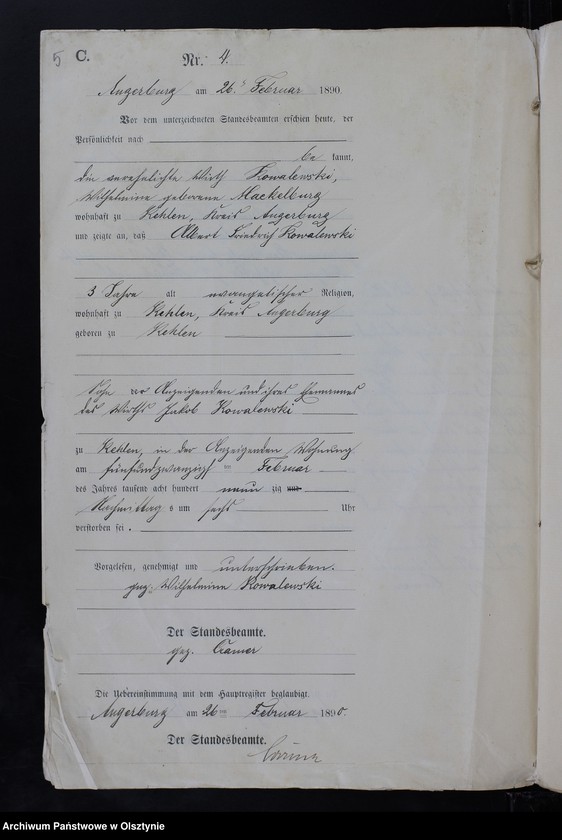 5 C. Nr. 4.
Angerburg am 26ten Februar 1890.
Vor dem unterzeichneten Standesbeamten erschien heute, der
Persönlichkeit nach
be kannt,
die verehelichte Wirth Kowalewski,
Wilhelmine geborene Mackelburg
wohnhaft zu Kehlen, Kreis Angerburg
und zeigte an, daß Albert Friedrich Kowalewski
3 Jahre alt evangelischer Religion,
wohnhaft zu Kehlen, Kreis Angerburg
geboren zu Kehlen
Sohn der Anzeigenden und ihres Ehemannes
des Wirths Jakob Kowalewski
zu Kehlen, in der Anzeigenden Wohnung
am fünfundzwanzigsten Februar
des Jahres tausend acht hundert neun zig und
Nachmittag s um sechs Uhr
verstorben sei.
Vorgelesen, genehmigt und unterschrieben.
gez. Wilhelmine Kowalewski
Der Standesbeamte.
gez. Cramer
Die Uebereinstimmung mit dem Hauptregister beglaubigt.
Angerburg am 26ten Februar 1890.
Der Standesbeamte.
Archiwum Państwowe w Olsztynie